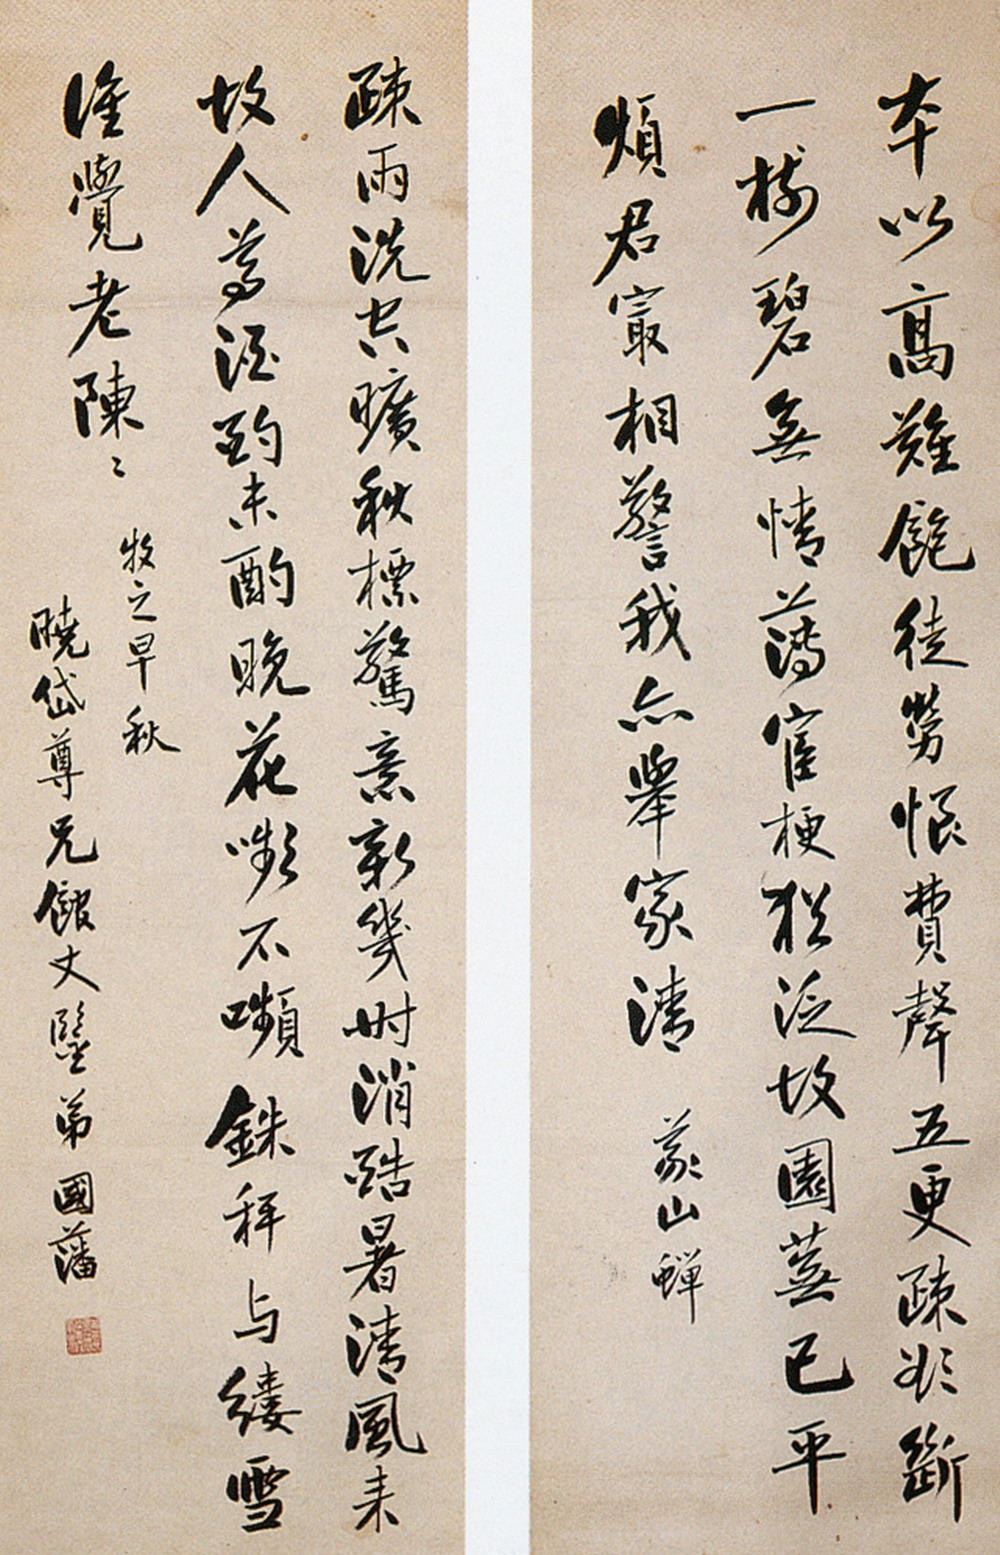 本以高難飽徒勞恨費聲五更疎欲斷
一樹碧無情薄宦梗猶泛故園蕪已平
煩君最相警我亦舉家清 義山蟬
疎雨洗空曠秋標驚意新幾时消酷暑清風来
故人尊酒酌未酌晚花嚬不嚬銖秤与縷雪
誰覺老陳〻
牧之早秋
曉岱尊兄館丈鑒弟國藩